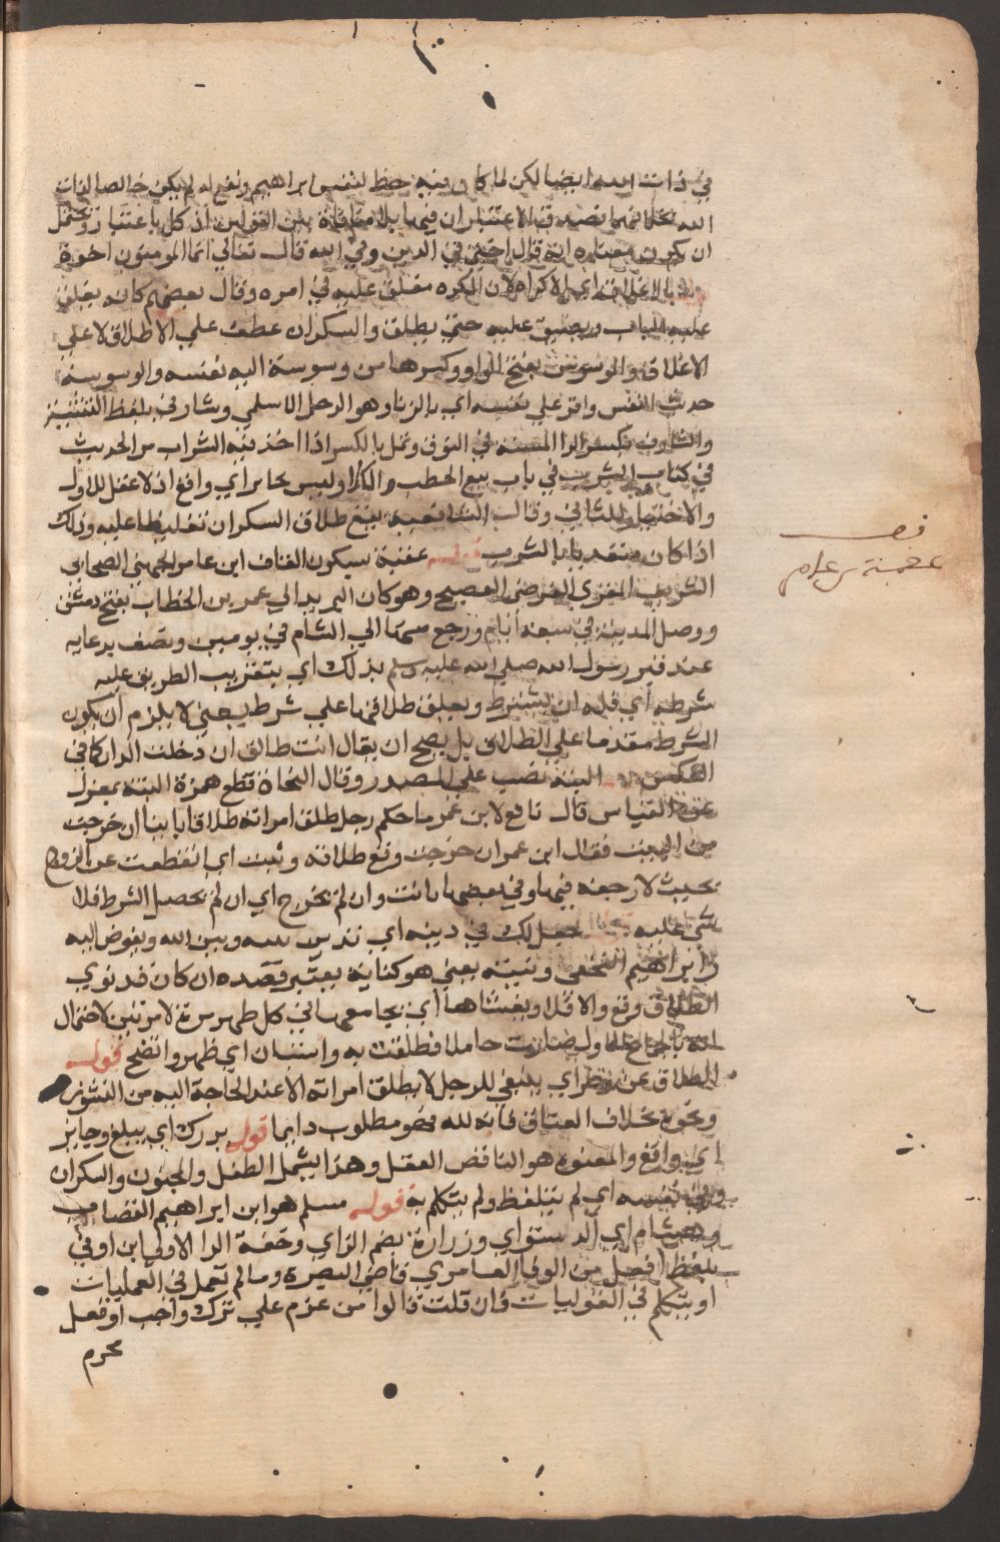 في ذات الله ايضا لكن لما كان فيه حظ لنفس ابراهيم ونفع له لم يكن خالصا لذات
الله تعالى فهما تصدق الاعتباران فيهما بلا منافاة بين القولين اذ كل باعتبار ويحتمل
ان يكون معناه انه قال اختي في الدين وفي الله قال تعالى انما المومنون اخوة
بالاغلاق اي الاكراه لان المكره مغلق عليه في امره وقال بعضهم كانه يغلق
عليه الباب ويضيق عليه حتي يطلق والسكران عطف علي الاطلاق لا علي
الاغلاق والموسوس بفتح الواو وكسرها من وسوسة اليه نفسه والوسوسة
حديث النفس واقر علي نفسه اي بالزنا وهو الرجل الاسلمي وشارفي بلفظ التثنية
والشارف بكسر الرا المسنة في النوق وثمل بالكسر اذا اخذ فيه الشراب مر الحديث
في كتاب الشرب في باب بيع الحطب والكلا وليس بجايز اي واقع اذ لا عقل للاول
والاختيار للثاني وقال الشافعية يقع طلاق السكران تغليظا عليه وذلك
اذا كان متعديا بالشرب قوله عقبة بسكون القاف ابن عامر الجهني الصحابي
الشريف المقري الفرضي الفصيح وهو كان البريد الي عمر بن الخطاب بفتح دمشق
ووصل المدينة في سبعة ايام ورجع منها الي الشام في يومين ونصف بدعايه
عند قبر رسول الله صلي الله عليه وسلم بذلك اي بتقريب الطريق عليه
شرطه اي فله ان يشترط ويعلق طلاقها علي شرط يعني لا يلزم ان يكون
الشرط مقدما علي الطلاق بل يصح ان يقال انت طالق ان دخلت الدار كما في
العكس البتة نصب علي المصدر وقال النحاة قطع همزة البتة بمعزل
عن القياس قال نافع لابن عمر ما حكم رجل طلق امراته طلاقا باينا ان خرجت
من البيت فقال ابن عمر ان خرجت وقع طلاقه وبتت اي انقطعت عن الزوج
بحيث لا رجعة فيها وفي بعضها بانت وان لم تخرج اي ان لم يحصل الشرط فلا
شي عليه جعل ذلك في دينه اي تدين بينه وبين الله ويفوض اليه
وابراهيم النخعي ونيته يعني هو كناية يعتبر قصده ان كان قد نوي
الطلاق وقع والا فلا ويغشاها اي يجامعها في كل طهر مرة لا مرتين لاحتمال
انه بالجماع الاول صارت حاملا فطلقت به واستبان اي ظهر واتضح قوله
الطلاق عن وطر اي ينبغي للرجل لا يطلق امراته الا عند الحاجة اليه من النشوز
ونحوه بخلاف العتاق فانه لله فهو مطلوب دايما قوله يدرك اي يبلغ وجايز
اي واقع والمعتوه هو الناقص العقل وهذا يشمل الطفل والمجنون والسكران
وفي نفسه اي لم يتلفظ ولم يتكلم به قوله مسلم هو ابن ابراهيم القصاب
وهشام اي الدستواي وزرارة بضم الزاي وخفة الرا الاولي ابن اوفي
بلفظ افعل من الوفا العامري قاضي البصرة وما لم تعمل في العمليات
او يتكلم في القوليات فان قلت قالوا من عزم علي ترك واجب او فعل
محرم
قصة
عقبة بن عامر